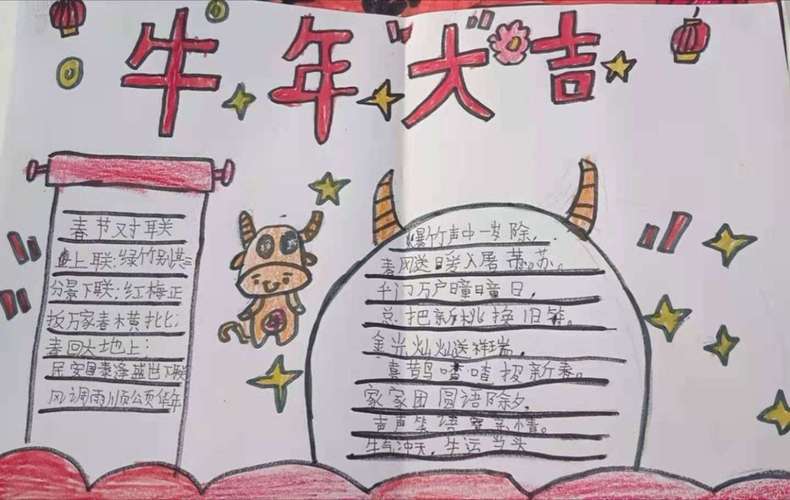 牛年大吉
春节对联
上联:绿竹别其三
分景下联:红梅正
报万家春横批:
春回大地上:
民安国泰逢盛世下联
风调雨顺颂华年
爆竹声中一岁除,
春风送暖入屠苏。
千门万户曈曈日,
总把新桃换旧符。
金光灿灿送祥瑞,
喜鹊喳喳报新春。
家家团圆语除夕,
声声笑语 亲情。
牛气冲天,牛运当头